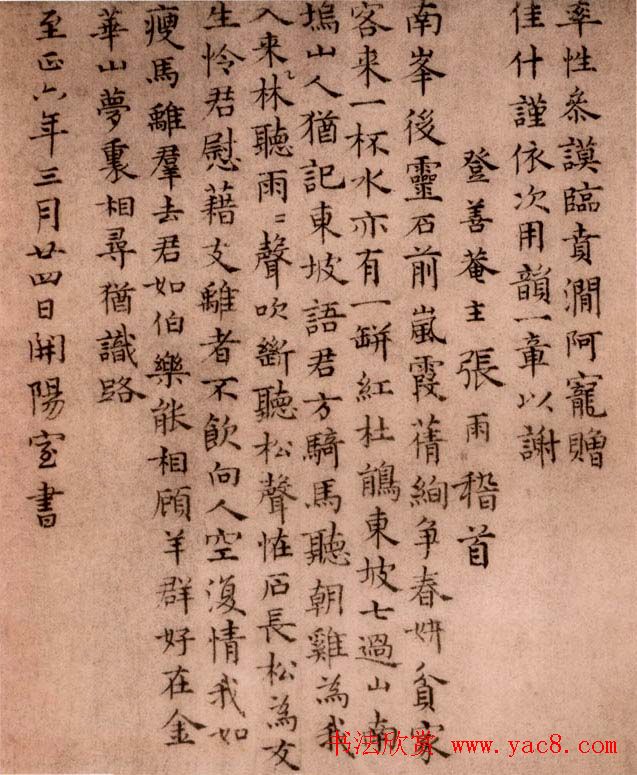 率性參謨臨賁澗阿寵贈
佳什謹依次用韻一章以謝
登善菴主張雨稽首
南峯後靈石前嵐霞蒨絢爭春妍貧家
客来一杯水亦有一缾紅杜鵑東坡七過山南
塢山人猶記東坡語君方騎馬聽朝雞為我
入来林聽雨〻聲吹斷聽松聲恠石長松為友
生怜君慰藉支離者不飲向人空復情我如
瘦馬離羣去君如伯樂能相顧羊群好在金
華山夢裏相尋猶識路
至正六年三月廿四日開陽室書
书法欣赏 www.yac8.com